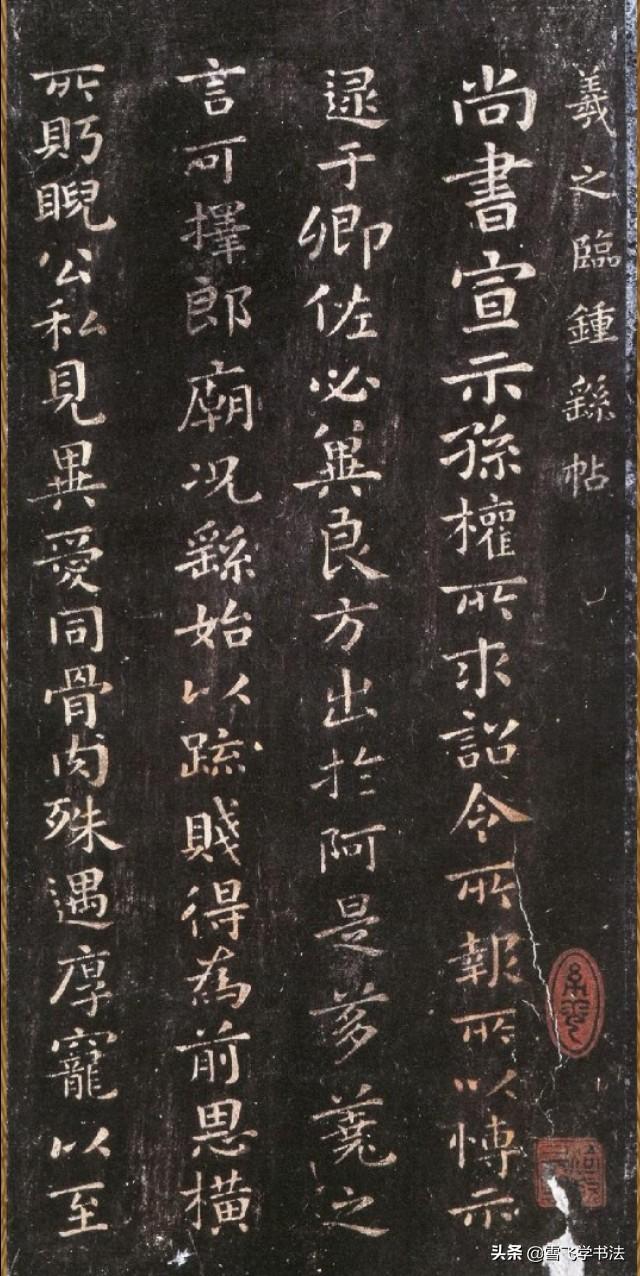 羲之臨鍾繇帖
尚書宣示孫權所求詔令所報所以博示
逮于卿佐必冀良方出於阿是芻蕘之
言可擇郎廟况繇始以疏賤得為前恩横
所眄睨公私見異愛同骨肉殊遇厚寵以至
头条 @雪飞学书法